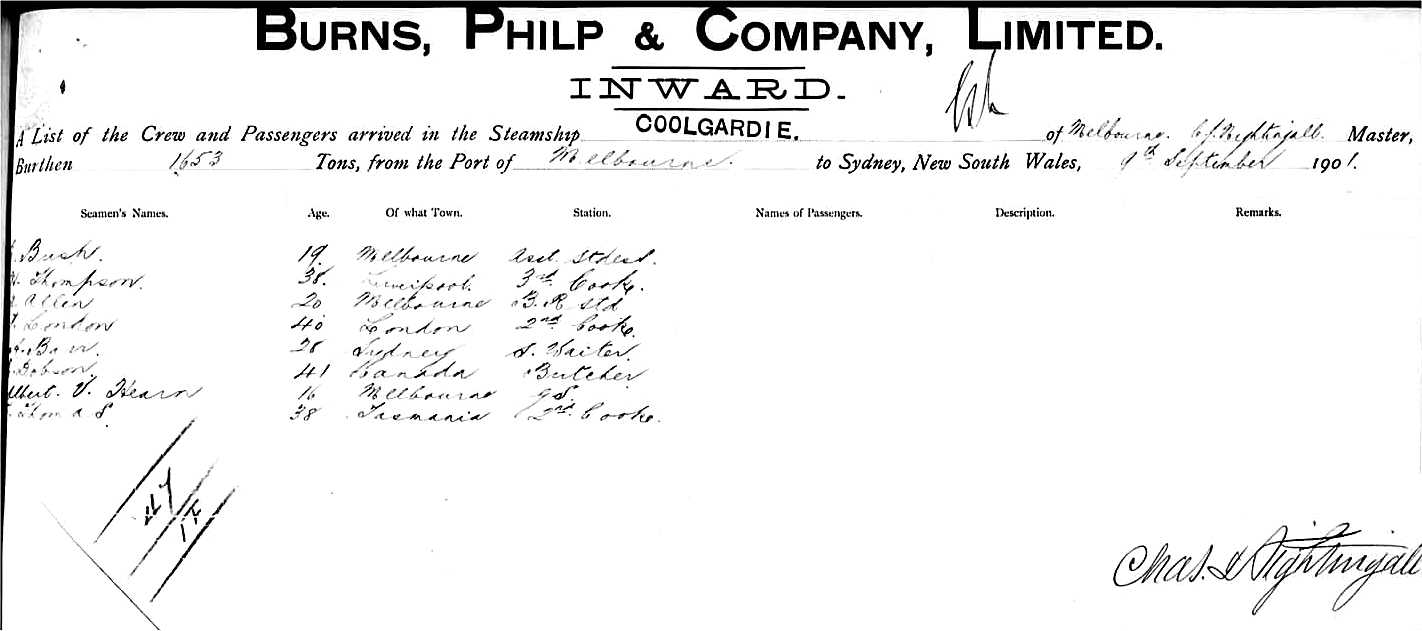 BURNS, PHILP & COMPANY, LIMITED.
INWARD.
A List of the Crew and Passengers arrived in the Steamship COOLGARDIE. of Melbourne. C. J. Nightingall. Master,
Burthen 1653 Tons, from the Port of Melbourne. to Sydney, New South Wales, 9th September 1901.
Seamen's Names. Age. Of what Town. Station. Names of Passengers. Description. Remarks.
Bush. 19 Melbourne Asst. Stdess.
Thompson. 38. Liverpool. 3rd Cooke.
Allen 20 Melbourne B. R Std
London 40 London 2nd Cooke.
Barr. 28 Sydney S. Waiter.
Dobson 41 Canada Butcher
Albert. V. Hearn 16 Melbourne G S.
Thomas. 38 Tasmania 2nd Cooke.
Chas. J Nightingall